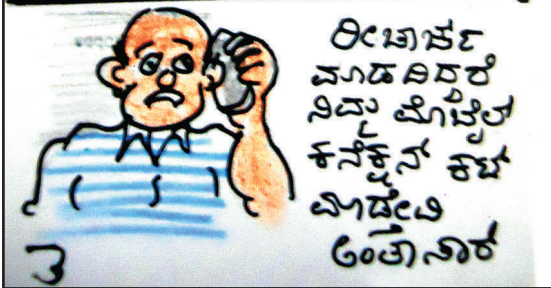 ರೀಚಾರ್ಜ
ಮಾಡದಿದ್ದರೆ
ನಿಮ್ಮ ಮೊಬೈಲ್
ಕನೆಕ್ಷನ್ ಕಟ್
ಮಾಡ್ತೇವಿ
ಅಂತಾ
೩